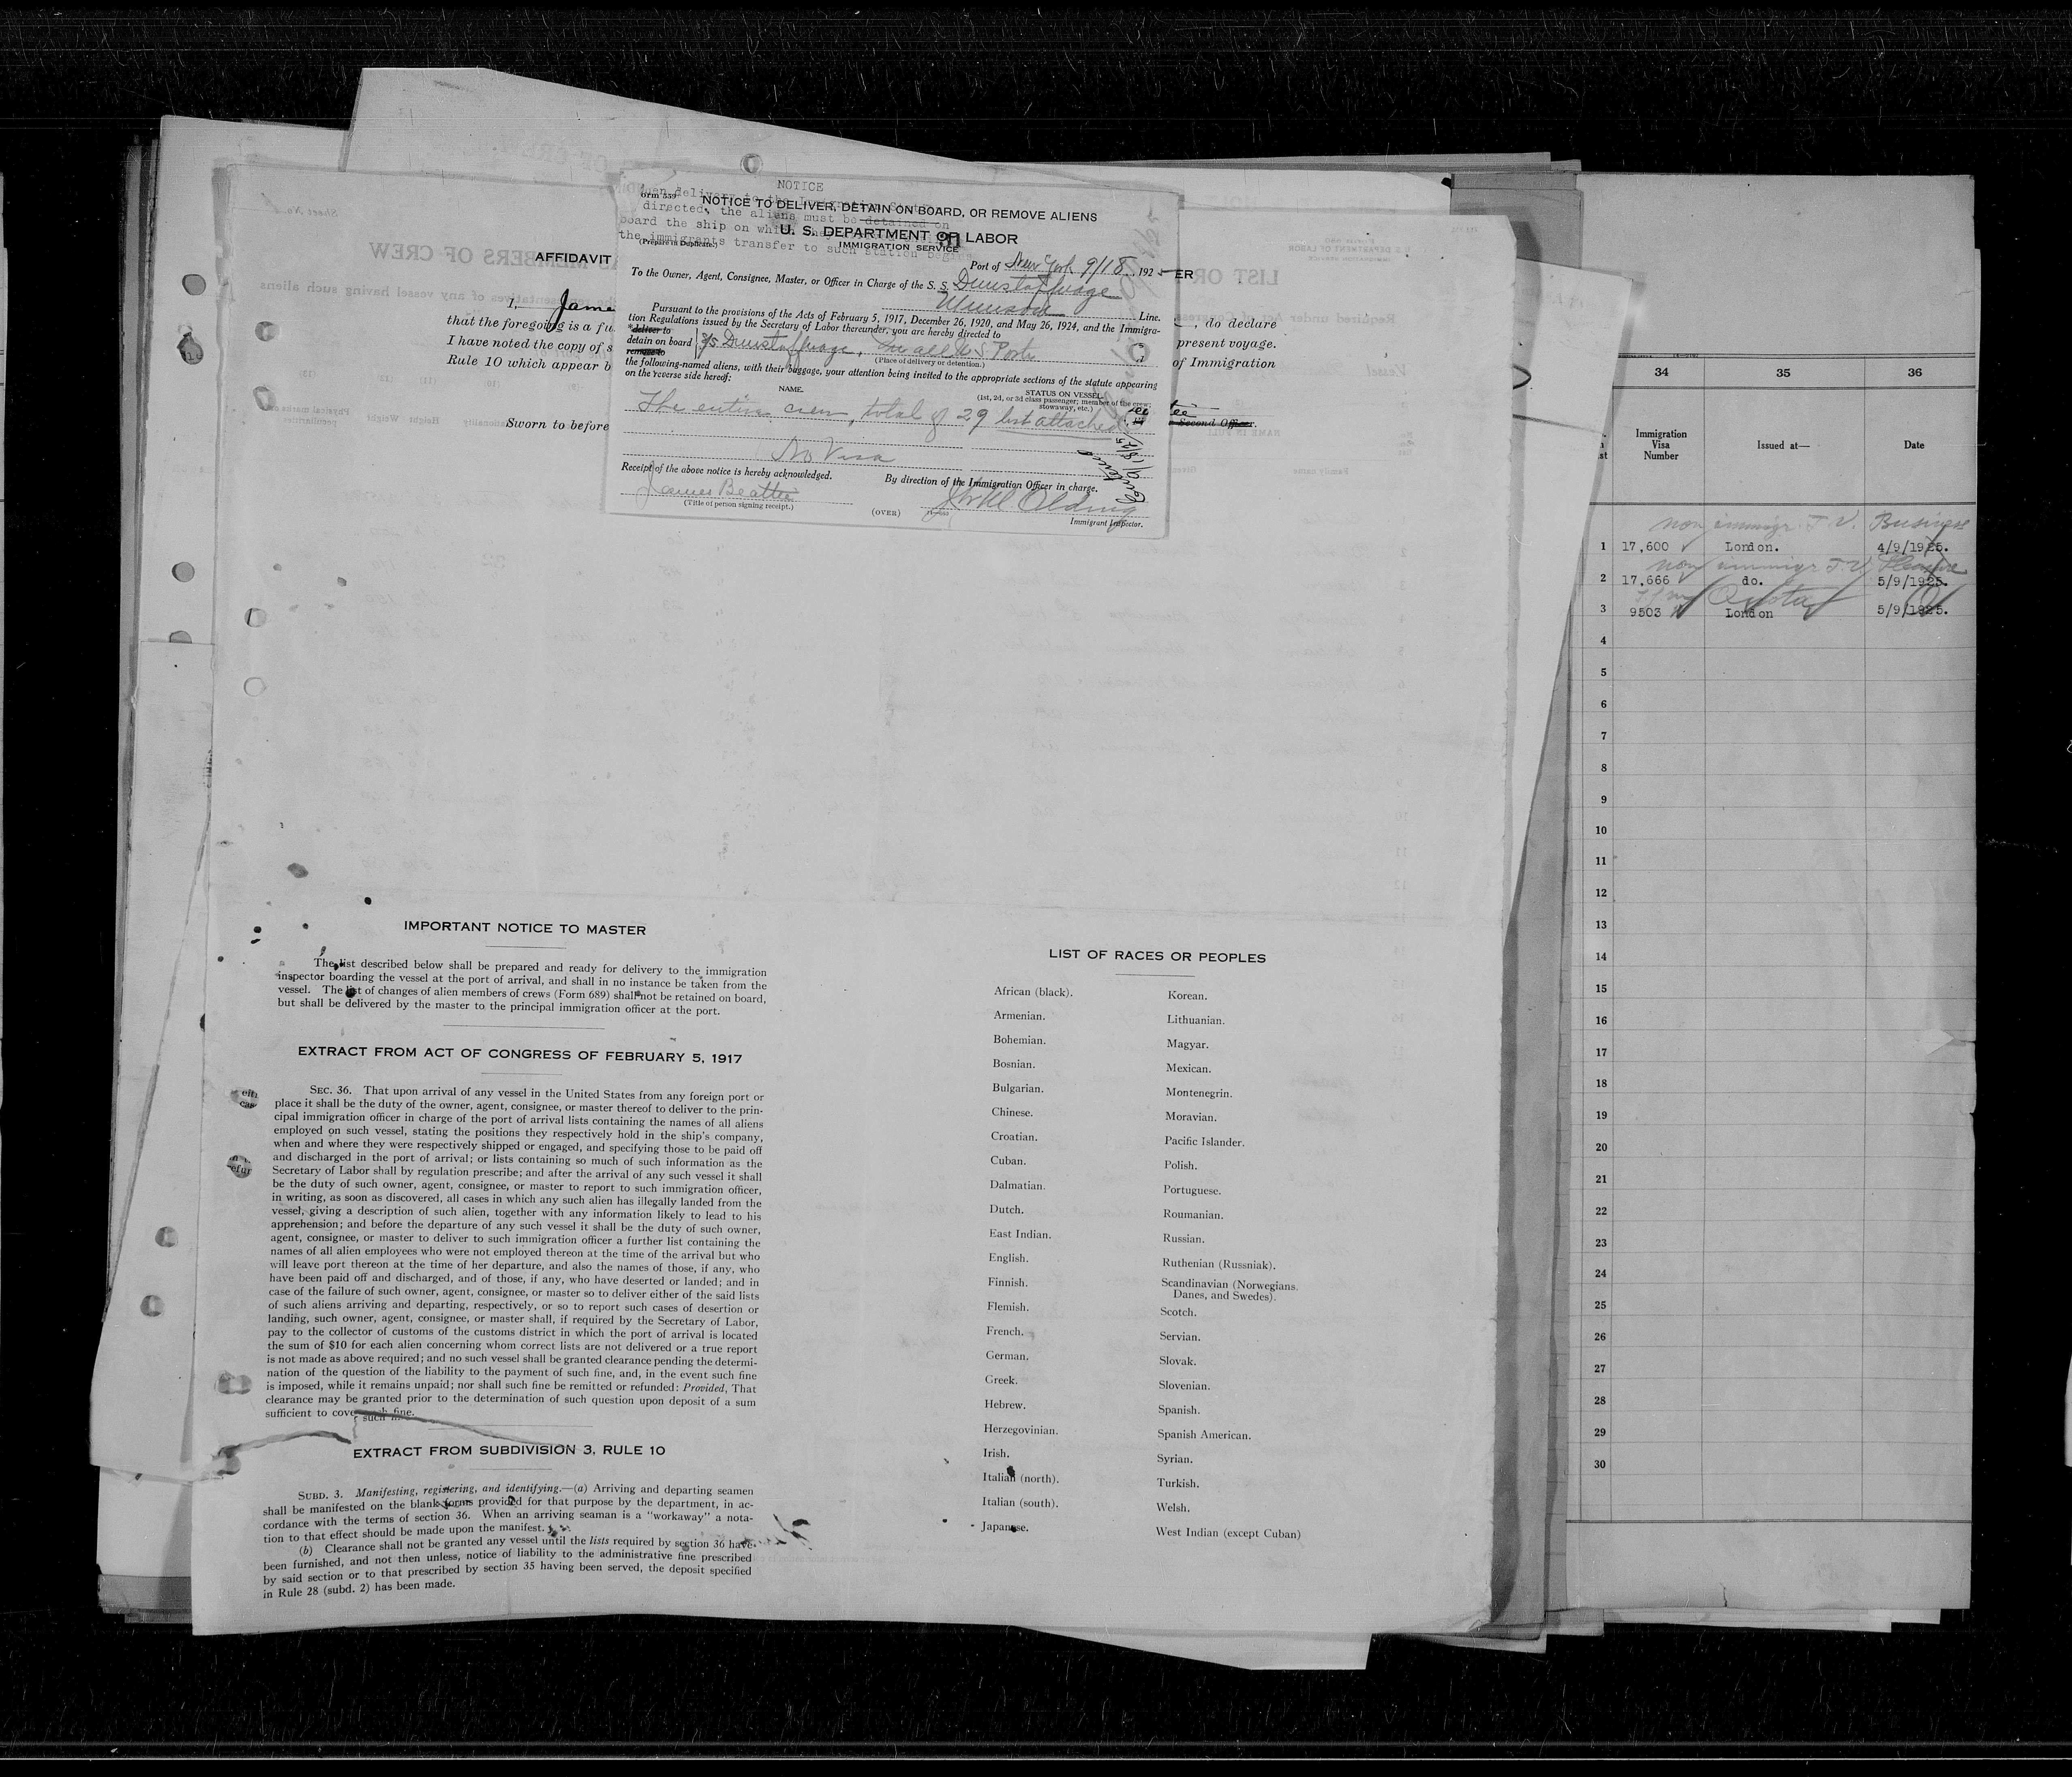 NOTICE
directed, the aliens must be detained on
board the ship on which
the immigrants transfer to such station begins
NOTICE TO DELIVER, DETAIN ON BOARD, OR REMOVE ALIENS
U. S. DEPARTMENT OF LABOR
IMMIGRATION SERVICE
(Prepare in Duplicate)
Port of New York 9/18, 1925
To the Owner, Agent, Consignee, Master, or Officer in Charge of the S. S. Dunstaffnage
Munson Line.
Pursuant to the provisions of the Acts of February 5, 1917, December 26, 1920, and May 26, 1924, and the Immigra-
tion Regulations issued by the Secretary of Labor thereunder, you are hereby directed to
*deliver to
detain on board S/S Dunstaffnage, In all U S Ports
remove to
(Place of delivery or detention.)
the following-named aliens, with their baggage, your attention being invited to the appropriate sections of the statute appearing
on the reverse side hereof:
NAME.
STATUS ON VESSEL.
(1st, 2d, or 3d class passenger; member of the crew; stowaway, etc.)
The entire crew, total of 29 list attached
No Visa
Receipt of the above notice is hereby acknowledged.
By direction of the Immigration Officer in charge.
James Beattie
(Title of person signing receipt.)
(OVER)
Immigrant Inspector.
AFFIDAVIT
ER
I, Jame
, do declare
that the foregoing is a fu
present voyage.
I have noted the copy of s
of Immigration
Rule 10 which appear b
Sworn to before
Second Officer.
IMPORTANT NOTICE TO MASTER
The list described below shall be prepared and ready for delivery to the immigration
inspector boarding the vessel at the port of arrival, and shall in no instance be taken from the
vessel. The list of changes of alien members of crews (Form 689) shall not be retained on board,
but shall be delivered by the master to the principal immigration officer at the port.
EXTRACT FROM ACT OF CONGRESS OF FEBRUARY 5, 1917
SEC. 36. That upon arrival of any vessel in the United States from any foreign port or
place it shall be the duty of the owner, agent, consignee, or master thereof to deliver to the prin-
cipal immigration officer in charge of the port of arrival lists containing the names of all aliens
employed on such vessel, stating the positions they respectively hold in the ship's company,
when and where they were respectively shipped or engaged, and specifying those to be paid off
and discharged in the port of arrival; or lists containing so much of such information as the
Secretary of Labor shall by regulation prescribe; and after the arrival of any such vessel it shall
be the duty of such owner, agent, consignee, or master to report to such immigration officer,
in writing, as soon as discovered, all cases in which any such alien has illegally landed from the
vessel, giving a description of such alien, together with any information likely to lead to his
apprehension; and before the departure of any such vessel it shall be the duty of such owner,
agent, consignee, or master to deliver to such immigration officer a further list containing the
names of all alien employees who were not employed thereon at the time of the arrival but who
will leave port thereon at the time of her departure, and also the names of those, if any, who
have been paid off and discharged, and of those, if any, who have deserted or landed; and in
case of the failure of such owner, agent, consignee, or master so to deliver either of the said lists
of such aliens arriving and departing, respectively, or so to report such cases of desertion or
landing, such owner, agent, consignee, or master shall, if required by the Secretary of Labor,
pay to the collector of customs of the customs district in which the port of arrival is located
the sum of $10 for each alien concerning whom correct lists are not delivered or a true report
is not made as above required; and no such vessel shall be granted clearance pending the determi-
nation of the question of the liability to the payment of such fine, and, in the event such fine
is imposed, while it remains unpaid; nor shall such fine be remitted or refunded: Provided, That
clearance may be granted prior to the determination of such question upon deposit of a sum
sufficient to cover such fine.
EXTRACT FROM SUBDIVISION 3, RULE 10
SUBD. 3. Manifesting, registering, and identifying.—(a) Arriving and departing seamen
shall be manifested on the blank forms provided for that purpose by the department, in ac-
cordance with the terms of section 36. When an arriving seaman is a "workaway" a nota-
tion to that effect should be made upon the manifest.
(b) Clearance shall not be granted any vessel until the lists required by section 36 have
been furnished, and not then unless, notice of liability to the administrative fine prescribed
by said section or to that prescribed by section 35 having been served, the deposit specified
in Rule 28 (subd. 2) has been made.
LIST OF RACES OR PEOPLES
African (black).
Armenian.
Bohemian.
Bosnian.
Bulgarian.
Chinese.
Croatian.
Cuban.
Dalmatian.
Dutch.
East Indian.
English.
Finnish.
Flemish.
French.
German.
Greek.
Hebrew.
Herzegovinian.
Irish.
Italian (north).
Italian (south).
Japanese.
Korean.
Lithuanian.
Magyar.
Mexican.
Montenegrin.
Moravian.
Pacific Islander.
Polish.
Portuguese.
Roumanian.
Russian.
Ruthenian (Russniak).
Scandinavian (Norwegians.
Danes, and Swedes).
Scotch.
Servian.
Slovak.
Slovenian.
Spanish.
Spanish American.
Syrian.
Turkish.
Welsh.
West Indian (except Cuban)
34 35 36
Immigration Visa Number
Issued at—
Date
non immigr T. V. Business
1 17,600 London. 4/9/1925.
non immigr T V Pleasure
2 17,666 do. 5/9/1925.
Quota
3 9503 London 5/9/1925.
4
5
6
7
8
9
10
11
12
13
14
15
16
17
18
19
20
21
22
23
24
25
26
27
28
29
30